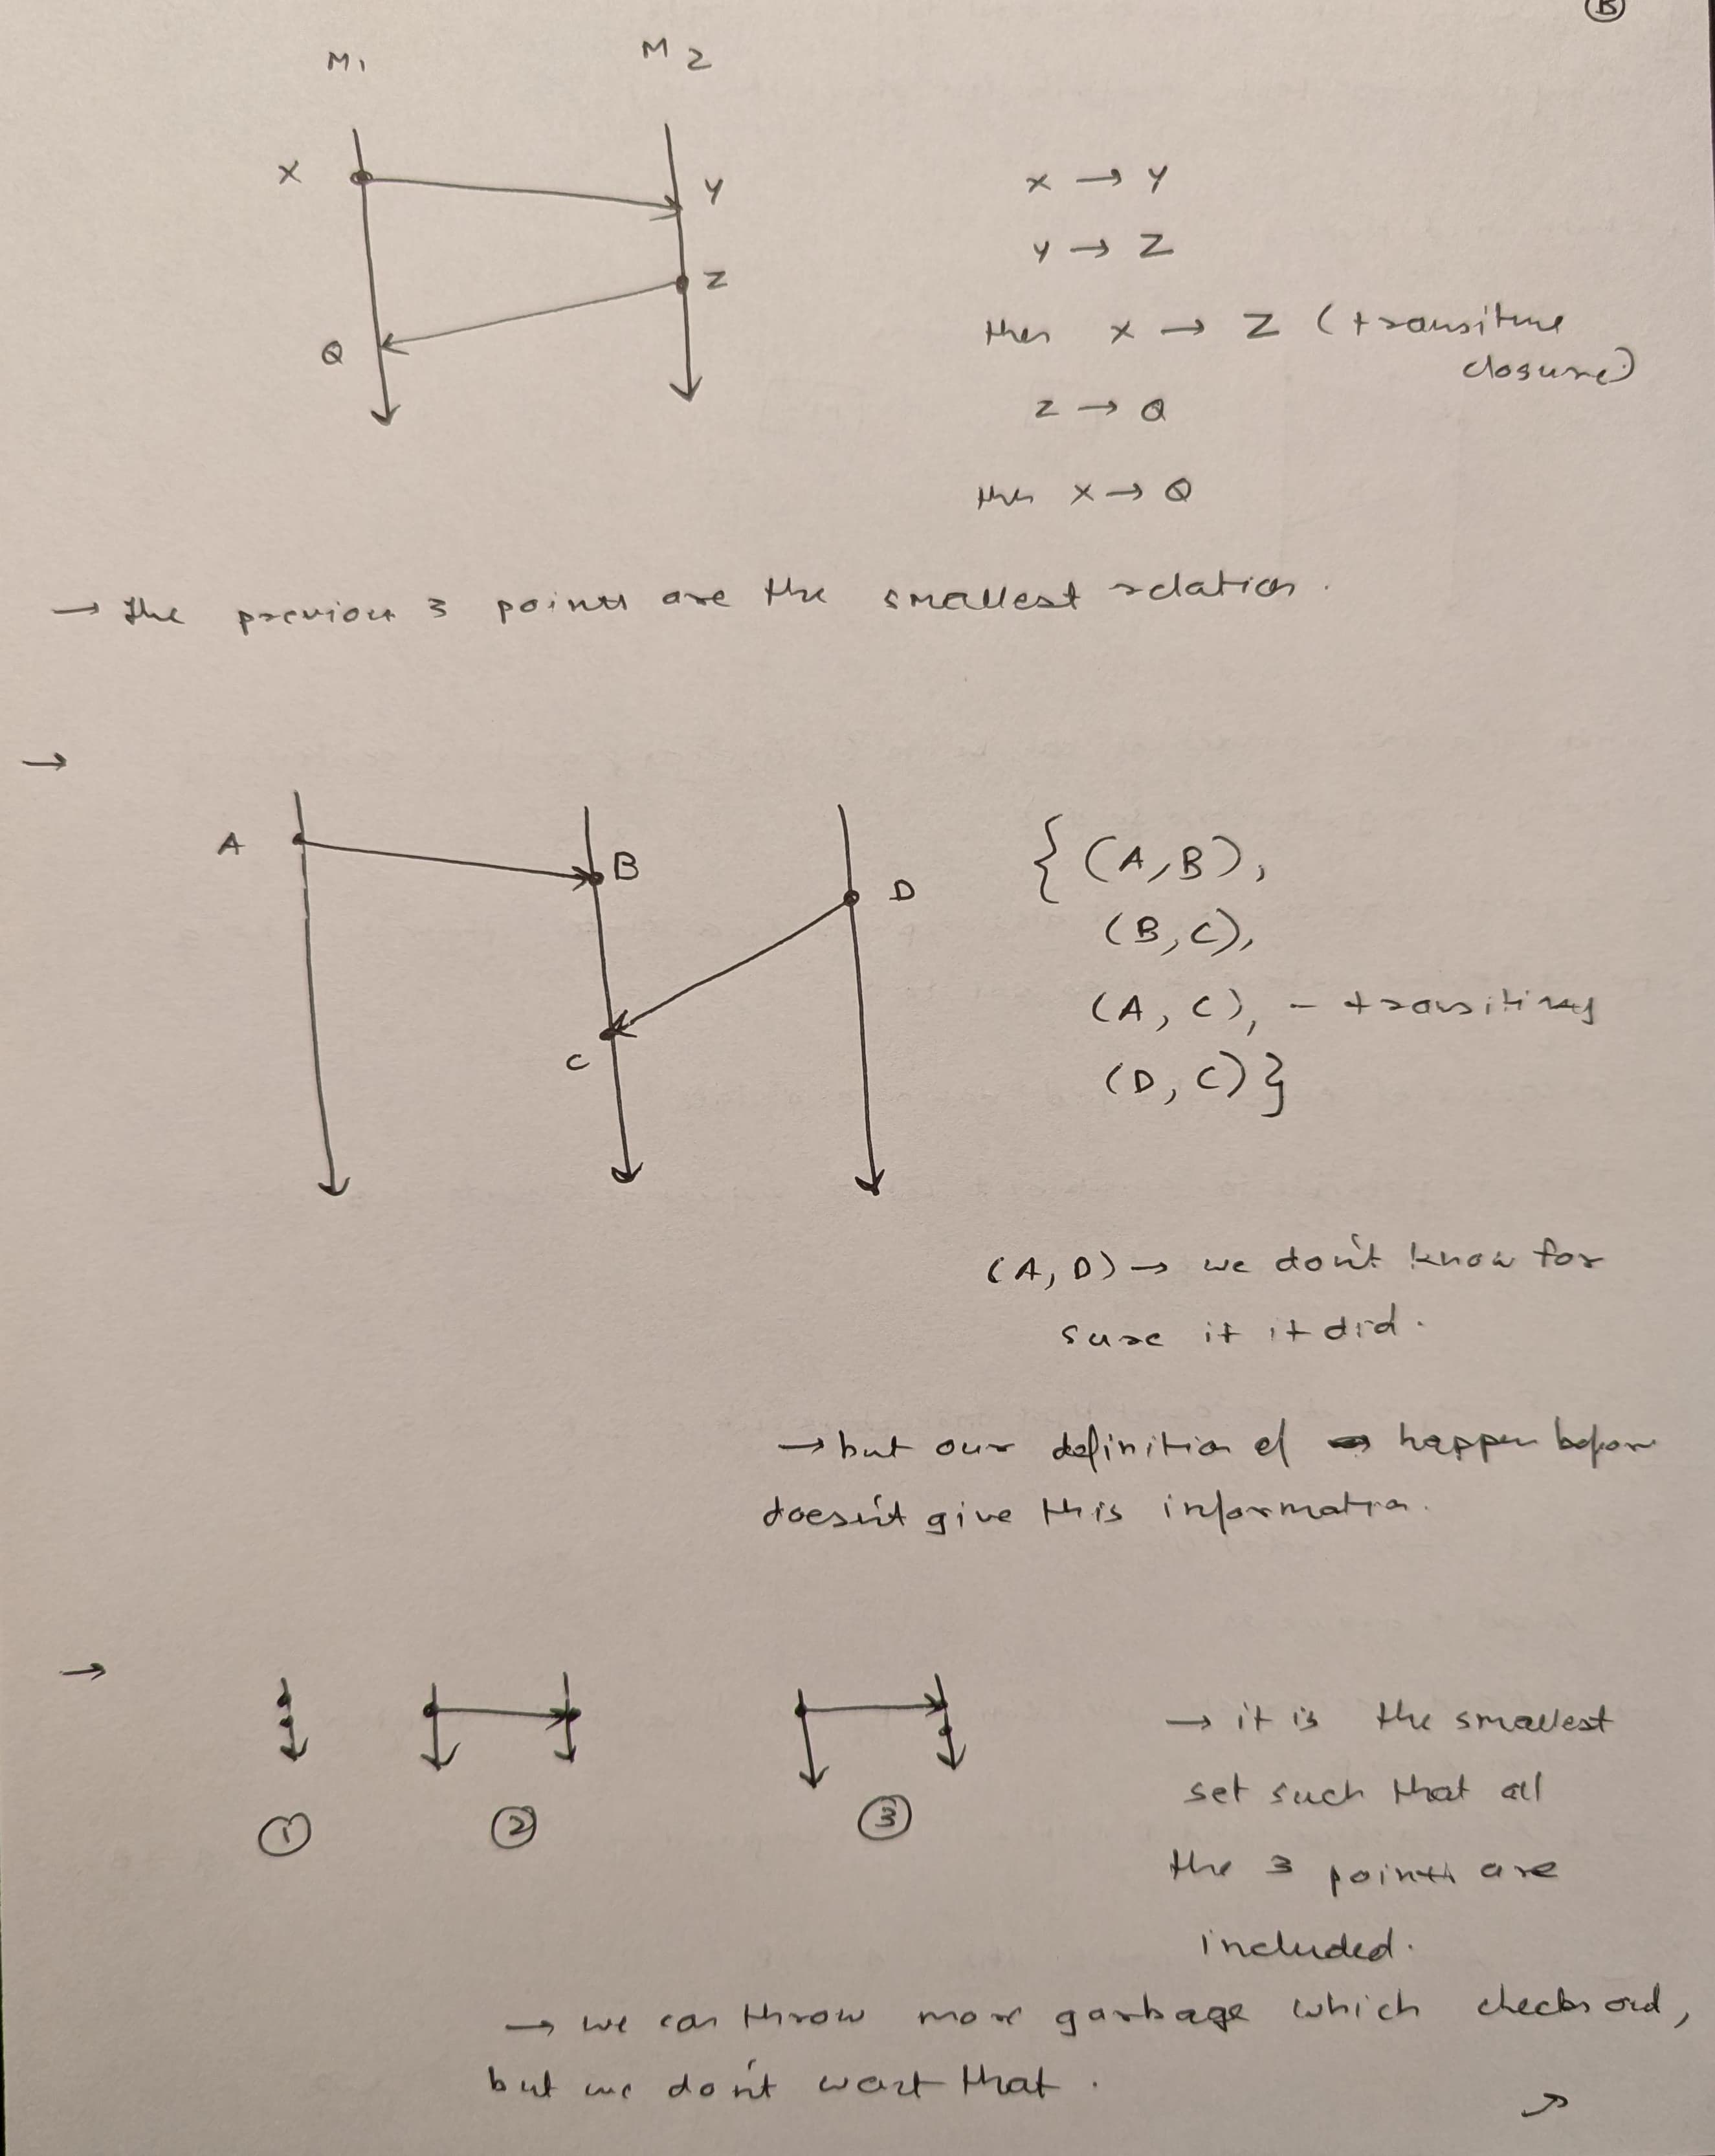 B
M1 M2
X Y
Z
Q
X → Y
Y → Z
then X → Z (transitive
closure)
Z → Q
then X → Q
→ the previous 3 points are the smallest relation.
→
A B D
C
{ (A,B),
(B,C),
(A,C), - transitivity
(D,C) }
(A,D) → we don't know for
sure if it did.
→ but our definition of → happen before
doesn't give this information.
→
1 2 3
→ it is the smallest
set such that all
the 3 points are
included.
→ we can throw more garbage which checks out,
but we don't want that.